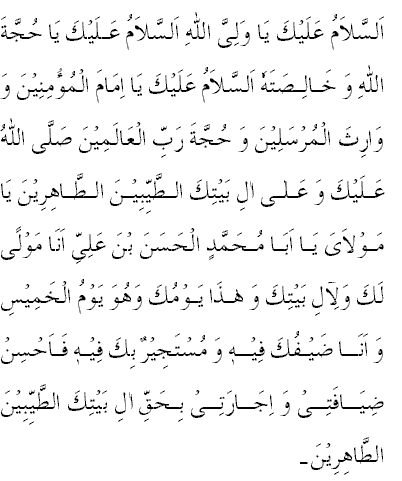 اَلسَّلاَمُ عَلَيْكَ يَا وَلِىَّ اللهِ اَلسَّلاَمُ عَـلَيْكَ يَا حُجَّةَ
اللهِ وَ خَـالِـصَتَهٗ اَلسَّلاَمُ عَلَيْكَ يَا اِمَامَ الْمُؤْمِنِيْنَ وَ
وَارِثَ الْمُرْسَلِيْنَ وَ حُجَّةَ رَبِّ الْعَالَمِيْنَ صَلَّى اللهُ
عَـلَيْكَ وَ عَـلـى الِ بَيْتِكَ الـطَّـيِّبِيْـنَ الـطَّـاهِرِيْنَ يَا
مَـوْلاَىَ يَـا اَبَـا مُـحَمَّدٍ الْحَسَنَ بْنَ عَلِيٍّ اَنَا مَوْلًى
لَكَ وَلِآلِ بَيْتِكَ وَ هٰذَا يَـوْمُكَ وَهُوَ يَوْمُ الْخَمِيْسِ
وَ اَنَـــا ضَـيْـفُكَ فِيْـــهِ وَ مُسْتَجِيْرٌ بِكَ فِيْـهِ فَـاَحْسِنْ
ضِيَـــافَتِـــىْ وَ اِجَـــارَتِـــىْ بِـحَقِّ الِ بَيْتِكَ الطَّيِّبِيْنَ
الطَّاهِرِيْنَ-